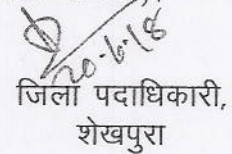 20.6.18
जिला पदाधिकारी,
शेखपुरा